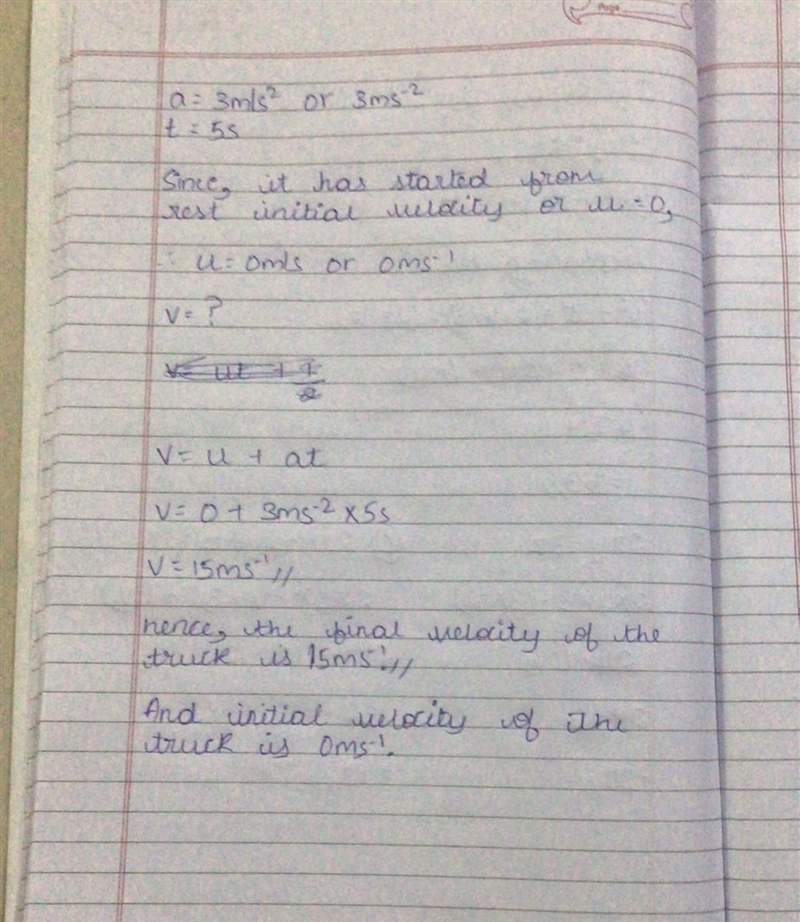 Page
a = 3m/s² or 3ms⁻²
t = 5s
Since, it has started from
rest initial velocity or u = 0,
∴ u = 0m/s or 0ms⁻¹
v = ?
v = ut + 1/2
v = u + at
v = 0 + 3ms⁻² × 5s
v = 15ms⁻¹//
hence, the final velocity of the
truck is 15ms⁻¹.//
And initial velocity of the
truck is 0ms⁻¹.